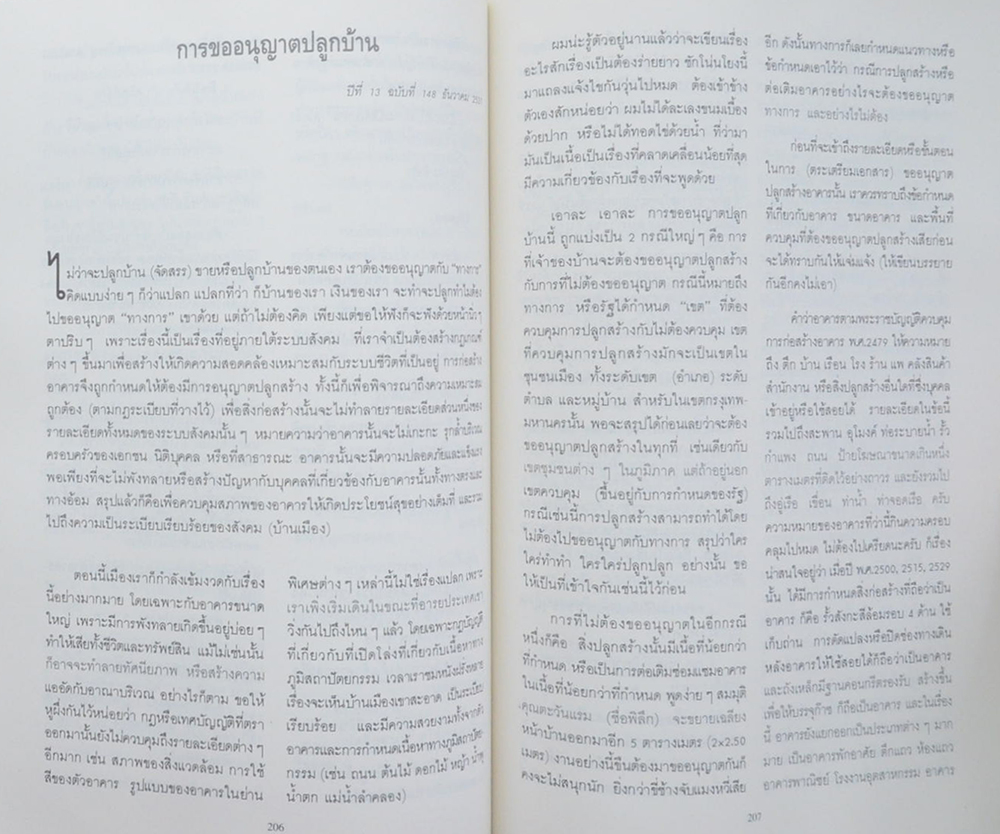 การขออนุญาตปลูกบ้าน
ปีที่ 13 ฉบับที่ 148 ธันวาคม
ไม่ว่าจะปลูกบ้าน (จัดสรร) ขายหรือปลูกบ้านของตนเอง เราต้องขออนุญาตกับ "ทางการ"
คิดแบบง่าย ๆ ก็ว่าแปลก แปลกที่ว่า ก็บ้านของเรา เงินของเรา จะทำจะปลูกทำไมต้อง
ไปขออนุญาต "ทางการ" เขาด้วย แต่ถ้าไม่ต้องคิด เพียงแต่ขอให้ฟังก็จะฟังด้วยหน้านิ่ง ๆ
ตาปริบ ๆ เพราะเรื่องนี้เป็นเรื่องที่อยู่ภายใต้ระบบสังคม ที่เราจำเป็นต้องสร้างกฎเกณฑ์
ต่าง ๆ ขึ้นมาเพื่อสร้างให้เกิดความสอดคล้องเหมาะสมกับระบบชีวิตที่เป็นอยู่ การก่อสร้าง
อาคารจึงถูกกำหนดให้ต้องมีการอนุญาตปลูกสร้าง ทั้งนี้ก็เพื่อพิจารณาถึงความเหมาะสม
ถูกต้อง (ตามกฎระเบียบที่วางไว้) เพื่อสิ่งก่อสร้างนั้นจะไม่ทำลายรายละเอียดส่วนหนึ่งของ
รายละเอียดทั้งหมดของระบบสังคมนั้น ๆ หมายความว่าอาคารนั้นจะไม่เกะกะ รุกล้ำบริเวณ
ครอบครัวของเอกชน นิติบุคคล หรือที่สาธารณะ อาคารนั้นจะมีความปลอดภัยและแข็งแรง
พอเพียงที่จะไม่พังทลายหรือสร้างปัญหากับบุคคลที่เกี่ยวข้องกับอาคารนั้นทั้งทางตรงและ
ทางอ้อม สรุปแล้วก็คือเพื่อควบคุมสภาพของอาคารให้เกิดประโยชน์สุขอย่างเต็มที่ และรวม
ไปถึงความเป็นระเบียบเรียบร้อยของสังคม (บ้านเมือง)
ตอนนี้เมืองเราก็กำลังเข้มงวดกับเรื่อง
นี้อย่างมากมาย โดยเฉพาะกับอาคารขนาด
ใหญ่ เพราะมีการพังทลายเกิดขึ้นอยู่บ่อย ๆ
ทำให้เสียทั้งชีวิตและทรัพย์สิน แม้ไม่เช่นนั้น
ก็อาจจะทำลายทัศนียภาพ หรือสร้างความ
แออัดกับอาณาบริเวณ อย่างไรก็ตาม ขอให้
หูผึ่งกันไว้หน่อยว่า กฎหรือเทศบัญญัติที่ตรา
ออกมานั้นยังไม่ควบคุมถึงรายละเอียดต่าง ๆ
อีกมาก เช่น สภาพของสิ่งแวดล้อม การใช้
สีของตัวอาคาร รูปแบบของอาคารในย่าน
พิเศษต่าง ๆ เหล่านี้ไม่ใช่เรื่องแปลก เพราะ
เราเพิ่งเริ่มเดินในขณะที่อารยประเทศเขา
วิ่งกันไปถึงไหน ๆ แล้ว โดยเฉพาะกฎบัญญัติ
ที่เกี่ยวกับที่เปิดโล่งที่เกี่ยวกับเนื้อหาทาง
ภูมิสถาปัตยกรรม เวลาเราชมหนังฝรั่งหลาย
เรื่องจะเห็นบ้านเมืองเขาสะอาด เป็นระเบียบ
เรียบร้อย และมีความสวยงามทั้งจากตัว
อาคารและการกำหนดเนื้อหาทางภูมิสถาปัตย-
กรรม (เช่น ถนน ต้นไม้ ดอกไม้ หญ้า น้ำพุ
น้ำตก แม่น้ำลำคลอง)
206
ผมน่ะรู้ตัวอยู่นานแล้วว่าจะเขียนเรื่อง
อะไรสักเรื่องเป็นต้องร่ายยาว ชักโน่นโยงนี้
มาแถลงแจ้งไขกันวุ่นไปหมด ต้องเข้าข้าง
ตัวเองสักหน่อยว่า ผมไม่ได้ละเลงขนมเบื้อง
ด้วยปาก หรือไม่ได้ทอดไข่ด้วยน้ำ ที่ว่ามา
มันเป็นเนื้อเป็นเรื่องที่คลาดเคลื่อนน้อยที่สุด
มีความเกี่ยวข้องกับเรื่องที่จะพูดด้วย
เอาละ เอาละ การขออนุญาตปลูก
บ้านนี้ ถูกแบ่งเป็น 2 กรณีใหญ่ ๆ คือ การ
ที่เจ้าของบ้านจะต้องขออนุญาตปลูกสร้าง
กับการที่ไม่ต้องขออนุญาต กรณีนี้หมายถึง
ทางการ หรือรัฐได้กำหนด "เขต" ที่ต้อง
ควบคุมการปลูกสร้างกับไม่ต้องควบคุม เขต
ที่ควบคุมการปลูกสร้างมักจะเป็นเขตใน
ชุมชนเมือง ทั้งระดับเขต (อำเภอ) ระดับ
ตำบล และหมู่บ้าน สำหรับในเขตกรุงเทพ-
มหานครนั้น พอจะสรุปได้ก่อนเลยว่าจะต้อง
ขออนุญาตปลูกสร้างในทุกที่ เช่นเดียวกับ
เขตชุมชนต่าง ๆ ในภูมิภาค แต่ถ้าอยู่นอก
เขตควบคุม (ขึ้นอยู่กับการกำหนดของรัฐ)
กรณีเช่นนี้การปลูกสร้างสามารถทำได้โดย
ไม่ต้องไปขออนุญาตกับทางการ สรุปว่าใคร
ใคร่ทำทำ ใครใคร่ปลูกปลูก อย่างนั้น ขอ
ให้เป็นที่เข้าใจกันเช่นนี้ไว้ก่อน
การที่ไม่ต้องขออนุญาตในอีกกรณี
หนึ่งก็คือ สิ่งปลูกสร้างนั้นมีเนื้อที่น้อยกว่า
ที่กำหนด หรือเป็นการต่อเติมซ่อมแซมอาคาร
ในเนื้อที่น้อยกว่าที่กำหนด พูดง่าย ๆ สมมุติ
คุณตะวันแรม (ชื่อพิลึก) จะขยายเฉลียง
หน้าบ้านออกมาอีก 5 ตารางเมตร (2x2.50
เมตร) งานอย่างนี้ขืนต้องมาขออนุญาตกันก็
คงจะไม่สนุกนัก ยิ่งกว่าขี่ช้างจับแมงหวี่เสีย
อีก ดังนั้นทางการก็เลยกำหนดแนวทางหรือ
ข้อกำหนดเอาไว้ว่า กรณีการปลูกสร้างหรือ
ต่อเติมอาคารอย่างไรจะต้องขออนุญาต
ทางการ และอย่างไรไม่ต้อง
ก่อนที่จะเข้าถึงรายละเอียดหรือขั้นตอน
ในการ (ตระเตรียมเอกสาร) ขออนุญาต
ปลูกสร้างอาคารนั้น เราควรทราบถึงข้อกำหนด
ที่เกี่ยวกับอาคาร ขนาดอาคาร และพื้นที่
ควบคุมที่ต้องขออนุญาตปลูกสร้างเสียก่อน
จะได้ทราบกันให้แจ่มแจ้ง (ให้เขียนบรรยาย
กันอีกคงไม่เอา)
คำว่าอาคารตามพระราชบัญญัติควบคุม
การก่อสร้างอาคาร พ.ศ.2479 ให้ความหมาย
ถึง ตึก บ้าน เรือน โรง ร้าน แพ คลังสินค้า
สำนักงาน หรือสิ่งปลูกสร้างอื่นใดที่ซึ่งบุคคล
เข้าอยู่หรือใช้สอยได้ รายละเอียดในข้อนี้
รวมไปถึงสะพาน อุโมงค์ ท่อระบายน้ำ รั้ว
กำแพง ถนน ป้ายโฆษณาขนาดเกินหนึ่ง
ตารางเมตรที่ติดไว้อย่างถาวร และยังรวมไป
ถึงอู่เรือ เขื่อน ท่าน้ำ ท่าจอดเรือ ครับ
ความหมายของอาคารที่ว่านี้กินความครอบ
คลุมไปหมด ไม่ต้องไปเครียดนะครับ ก็เรื่อง
น่าสนใจอยู่ว่า เมื่อปี พ.ศ.2500, 2515, 2529
นั้น ได้มีการกำหนดสิ่งก่อสร้างที่ถือว่าเป็น
อาคาร ก็คือ รั้วสังกะสีล้อมรอบ 4 ด้าน ใช้
เก็บถ่าน การดัดแปลงหรือปิดช่องทางเดิน
หลังอาคารให้ใช้สอยได้ก็ถือว่าเป็นอาคาร
และถังเหล็กมีฐานคอนกรีตรองรับ สร้างขึ้น
เพื่อให้บรรจุก๊าซ ก็ถือเป็นอาคาร และในเรื่อง
นี้ อาคารยังแยกออกเป็นประเภทต่าง ๆ มาก
มาย เป็นอาคารพักอาศัย ตึกแถว ห้องแถว
อาคารพาณิชย์ โรงงานอุตสาหกรรม อาคาร
207